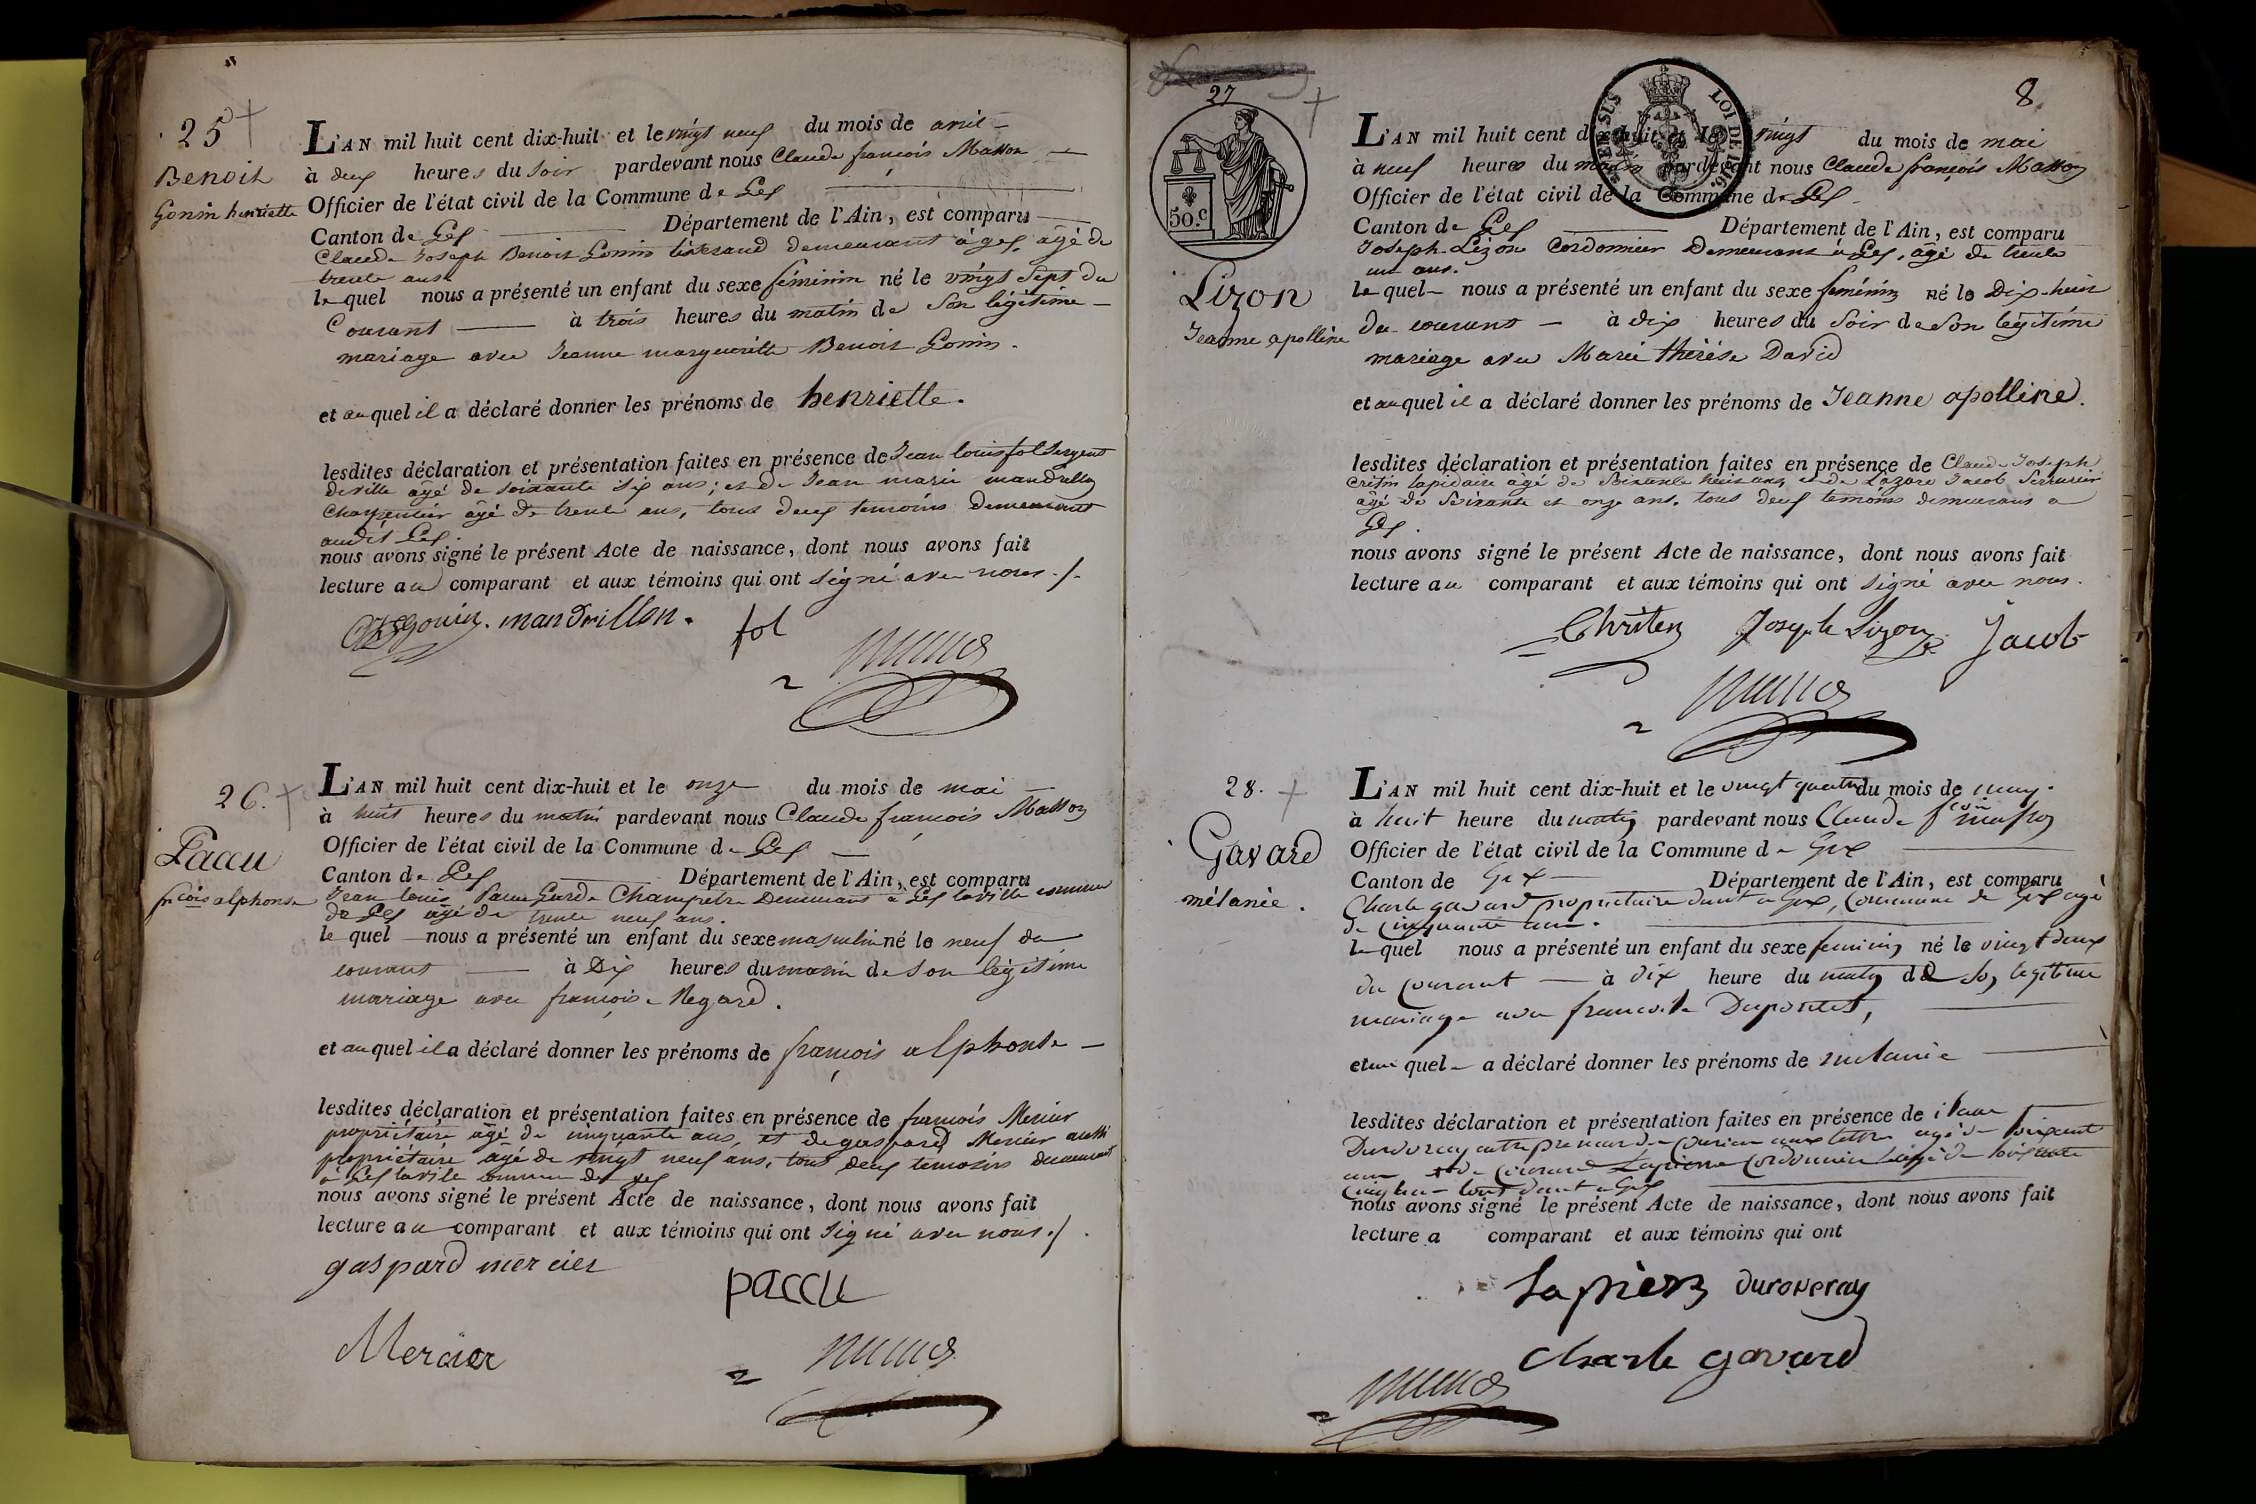 25
Benoit
Gonin henriette
L'AN mil huit cent dix-huit et le vingt neuf du mois de avril
à deux heures du soir pardevant nous Claude françois Masson
Officier de l'état civil de la Commune de Gex
Canton de Gex Département de l'Ain, est comparu
Claude Joseph Benoit Gonin tisserand demeurant à gex, âgé de
trente ans
le quel nous a présenté un enfant du sexe féminin né le vingt sept du
Courant à trois heures du matin de son légitime
mariage avec Jeanne marguerite Benoit Gonin.
et auquel il a déclaré donner les prénoms de henriette.
lesdites déclaration et présentation faites en présence de Jean louis fol Sergent
de ville âgé de soixante six ans; et de Jean marie mandrillon
Charpentier âgé de trente ans, tous deux temoins demeurant
audit Gex.
nous avons signé le présent Acte de naissance, dont nous avons fait
lecture au comparant et aux témoins qui ont signé avec nous ./.
mandrillon. fol
26.
Paccu
fr.cois alphonse
L'AN mil huit cent dix-huit et le onze du mois de mai
à huit heures du matin pardevant nous Claude françois Masson
Officier de l'état civil de la Commune de Gex
Canton de Gex Département de l'Ain, est comparu
Jean louis Paccu Garde Champetre Demeurant à Gex la ville commune
de Gex âgé de trente neuf ans.
le quel nous a présenté un enfant du sexe masculin né le neuf du
courant à Dix heures du matin de son légitime
mariage avec françoise Regard.
et auquel il a déclaré donner les prénoms de françois alphonse
lesdites déclaration et présentation faites en présence de françois Mercier
propriétaire âgé de cinquante ans, et de gaspard Mercier aussi
propriétaire âgé de vingt neuf ans, tous deux temoins demeurant
à Gex la ville commune de gex
nous avons signé le présent Acte de naissance, dont nous avons fait
lecture au comparant et aux témoins qui ont signé avec nous ./.
gaspard mercier paccu
Mercier
8.
27
50.c
LOI DE 1816
Lizon
Jeanne apolline
L'AN mil huit cent dix-huit et le vingt du mois de mai
à neuf heures du matin pardevant nous Claude françois Masson
Officier de l'état civil de la Commune de Gex
Canton de Gex Département de l'Ain, est comparu
Joseph Lizon Cordonnier Demeurant à Gex, âgé de trente
un ans.
le quel nous a présenté un enfant du sexe féminin né le Dix-huit
du courant à dix heures du soir de son légitime
mariage avec Marie thérèse David
et auquel il a déclaré donner les prénoms de Jeanne apolline.
lesdites déclaration et présentation faites en présence de Claude Joseph
Crétin lapidaire âgé de Soixante huit ans, et de Lazare Jacob Serrurier
âgé de Soixante et onze ans. tous deux temoins demeurans a
Gex.
nous avons signé le présent Acte de naissance, dont nous avons fait
lecture au comparant et aux témoins qui ont signé avec nous.
Joseph Lizon Jacob
28.
Gavard
mélanie.
L'AN mil huit cent dix-huit et le vingt quatre du mois de may.
à huit heure du matin pardevant nous Claude f.cois masson
Officier de l'état civil de la Commune de Gex
Canton de Gex Département de l'Ain, est comparu
Charle gavard propriétaire dmt a Gex, Commune de Gex agé
de cinquante
le quel nous a présenté un enfant du sexe feminin né le vingt deux
du Courant à dix heure du matin de son legitime
mariage avec francoise Dupontet,
et au quel a déclaré donner les prénoms de melanie
lesdites déclaration et présentation faites en présence de
Duroveray entrepreneur agé de soixante
ans et de Lapierre Cordonnier agé de soixante
cinq ans tous dmt a Gex
nous avons signé le présent Acte de naissance, dont nous avons fait
lecture a comparant et aux témoins qui ont
Lapierre Duroveray
Charle gavard